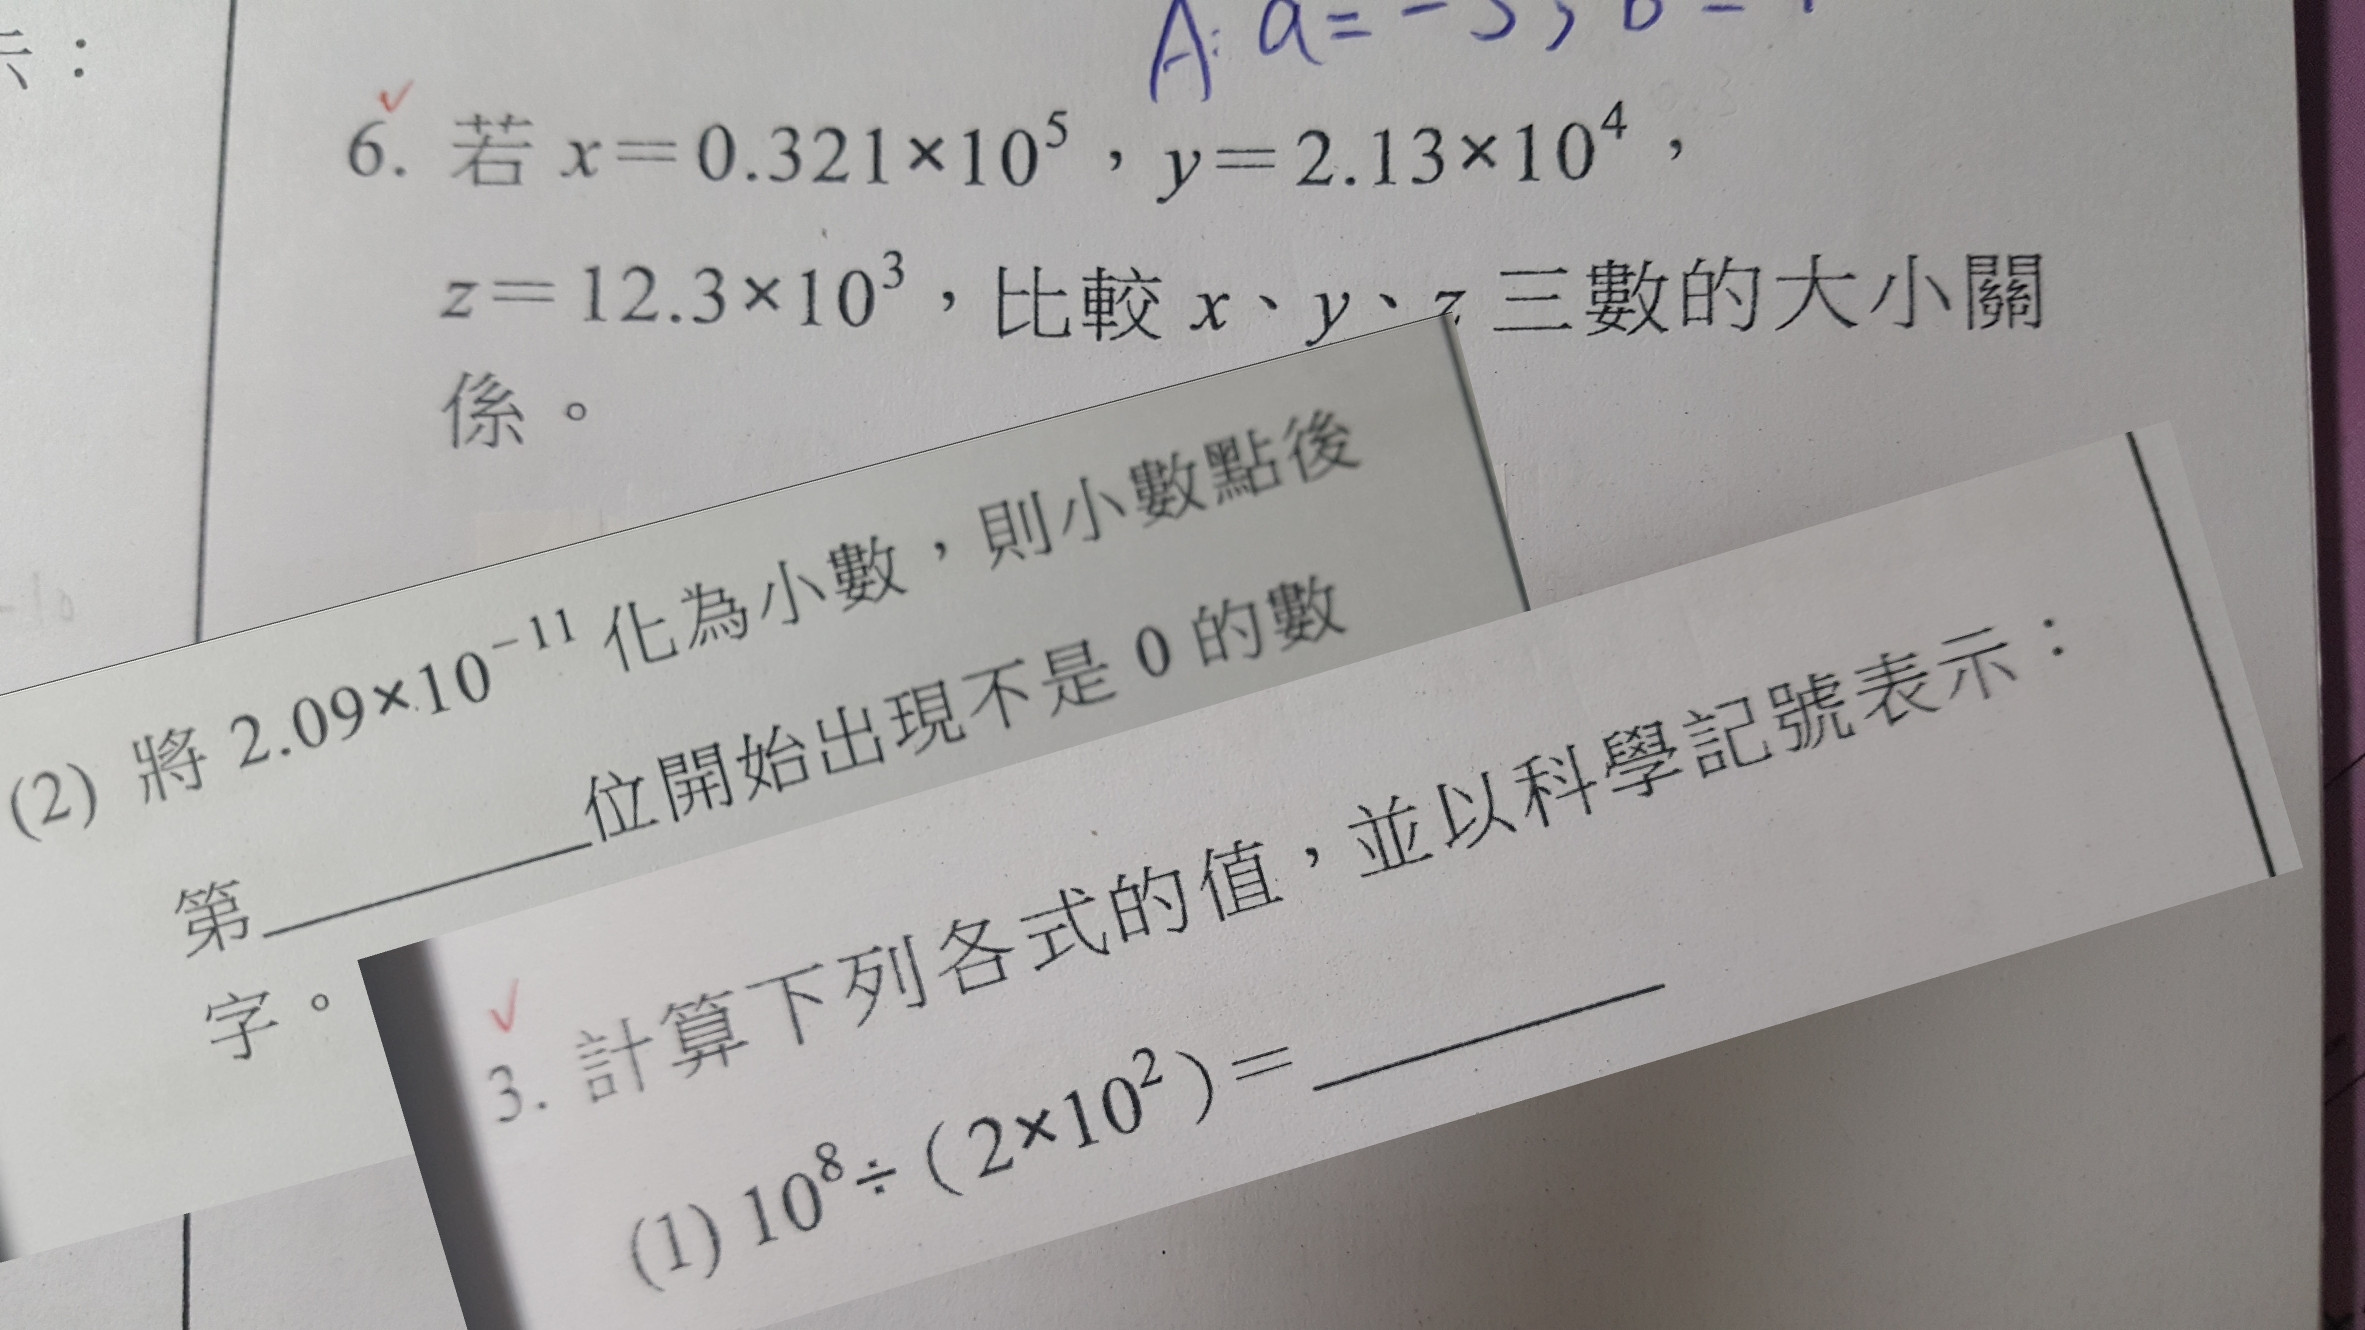 A: a=
6. 若 x=0.321×10⁵，y=2.13×10⁴，
z=12.3×10³，比較 x、y、z 三數的大小關
係。
(2) 將 2.09×10⁻¹¹ 化為小數，則小數點後
第________位開始出現不是 0 的數
字。
3. 計算下列各式的值，並以科學記號表示：
(1) 10⁸÷(2×10²)=________